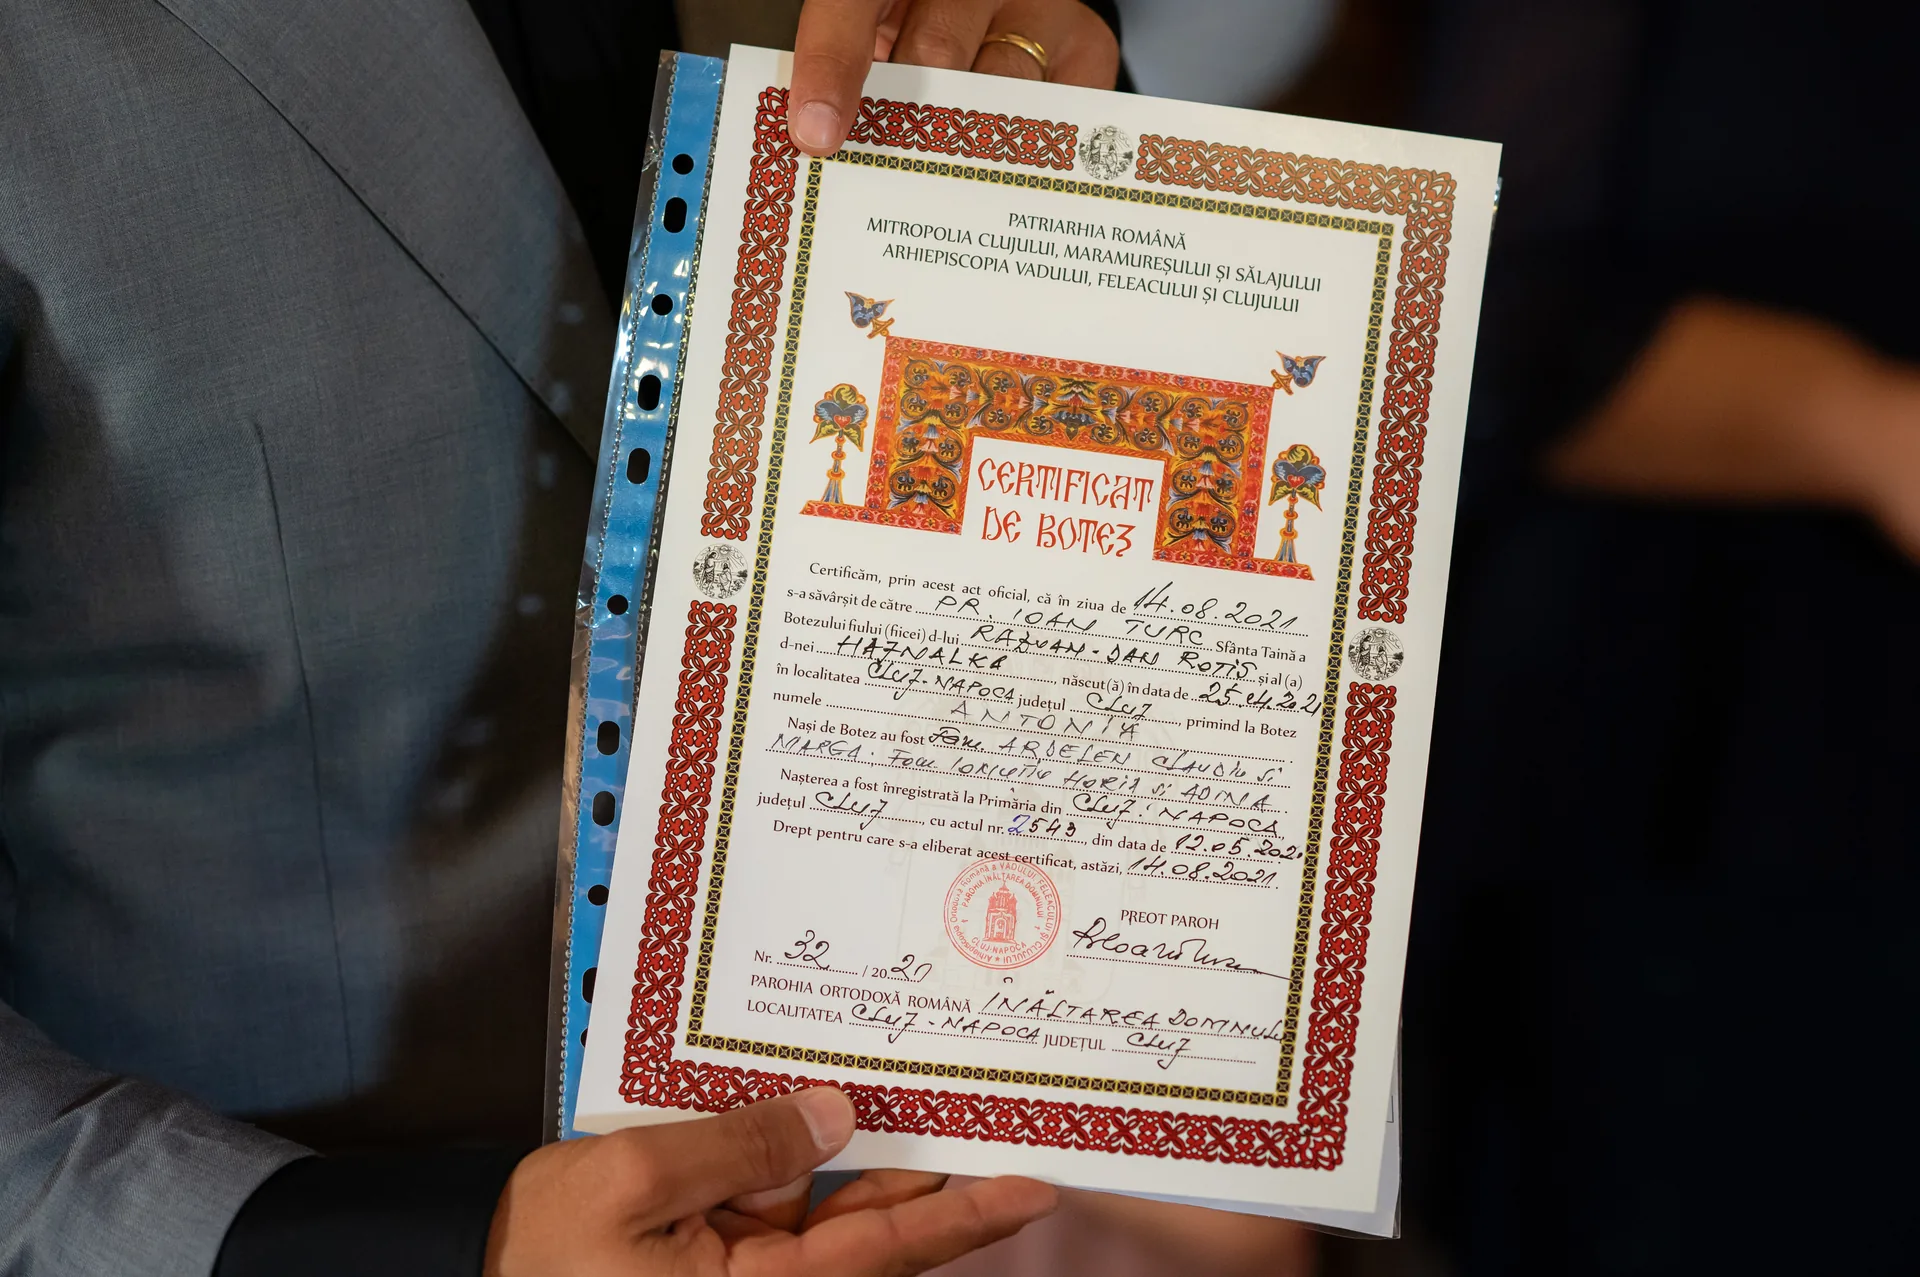 PATRIARHIA ROMÂNĂ
MITROPOLIA CLUJULUI, MARAMUREȘULUI ȘI SĂLAJULUI
ARHIEPISCOPIA VADULUI, FELEACULUI ȘI CLUJULUI
CERTIFICAT
DE BOTEZ
Certificăm, prin acest act oficial, că în ziua de 14.08.2021
s-a săvârșit de către PR. IOAN TURC Sfânta Taină a
Botezului fiului (fiicei) d-lui RĂZVAN-DAN ROTIȘ și al (a)
d-nei HAJNALKA, născut(ă) în data de 25.04.2021
în localitatea CLUJ-NAPOCA județul CLUJ, primind la Botez
numele ANTONIA
Nași de Botez au fost Fam. ARDELEN CLAUDIU și
MARGA. Fam. HORIA și ADINA
Nașterea a fost înregistrată la Primăria din CLUJ-NAPOCA,
județul CLUJ, cu actul nr. 2543, din data de 12.05.2021
Drept pentru care s-a eliberat acest certificat, astăzi, 14.08.2021.
Arhiepiscopia Ortodoxă Română a VADULUI FELEACULUI ȘI CLUJULUI
PAROHIA ÎNĂLȚAREA DOMNULUI 1
CLUJ-NAPOCA
PREOT PAROH
Nr. 32 / 2021
PAROHIA ORTODOXĂ ROMÂNĂ ÎNĂLȚAREA DOMNULUI
LOCALITATEA CLUJ-NAPOCA JUDEȚUL CLUJ